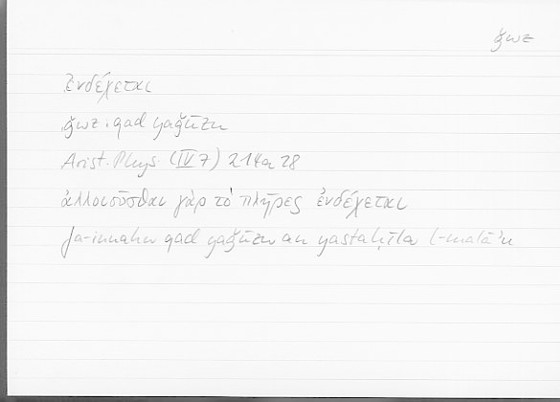 ǧwz
ἐνδέχεται
ǧwz. qad yaǧūzu
Arist. Phys. (IV 7) 214a28
ἀλλοιοῦσθαι γὰρ τὸ πλῆρες ἐνδέχεται
fa-innahu qad yaǧūzu an yastaḥīla l-malā'u